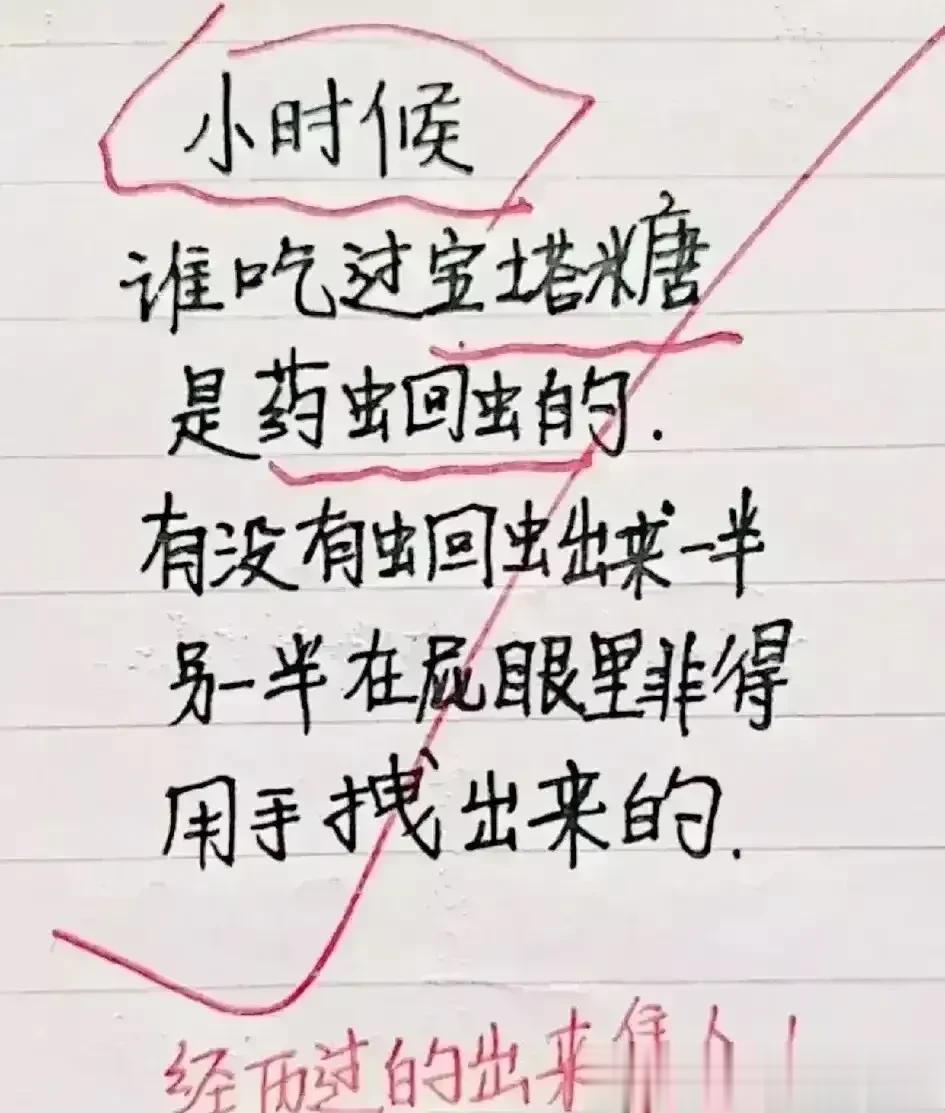 小时候
谁吃过宝塔糖
是药蛔虫的.
有没有蛔虫出来一半
另一半在屁眼里非得
用手拽出来的.
经历过的出来